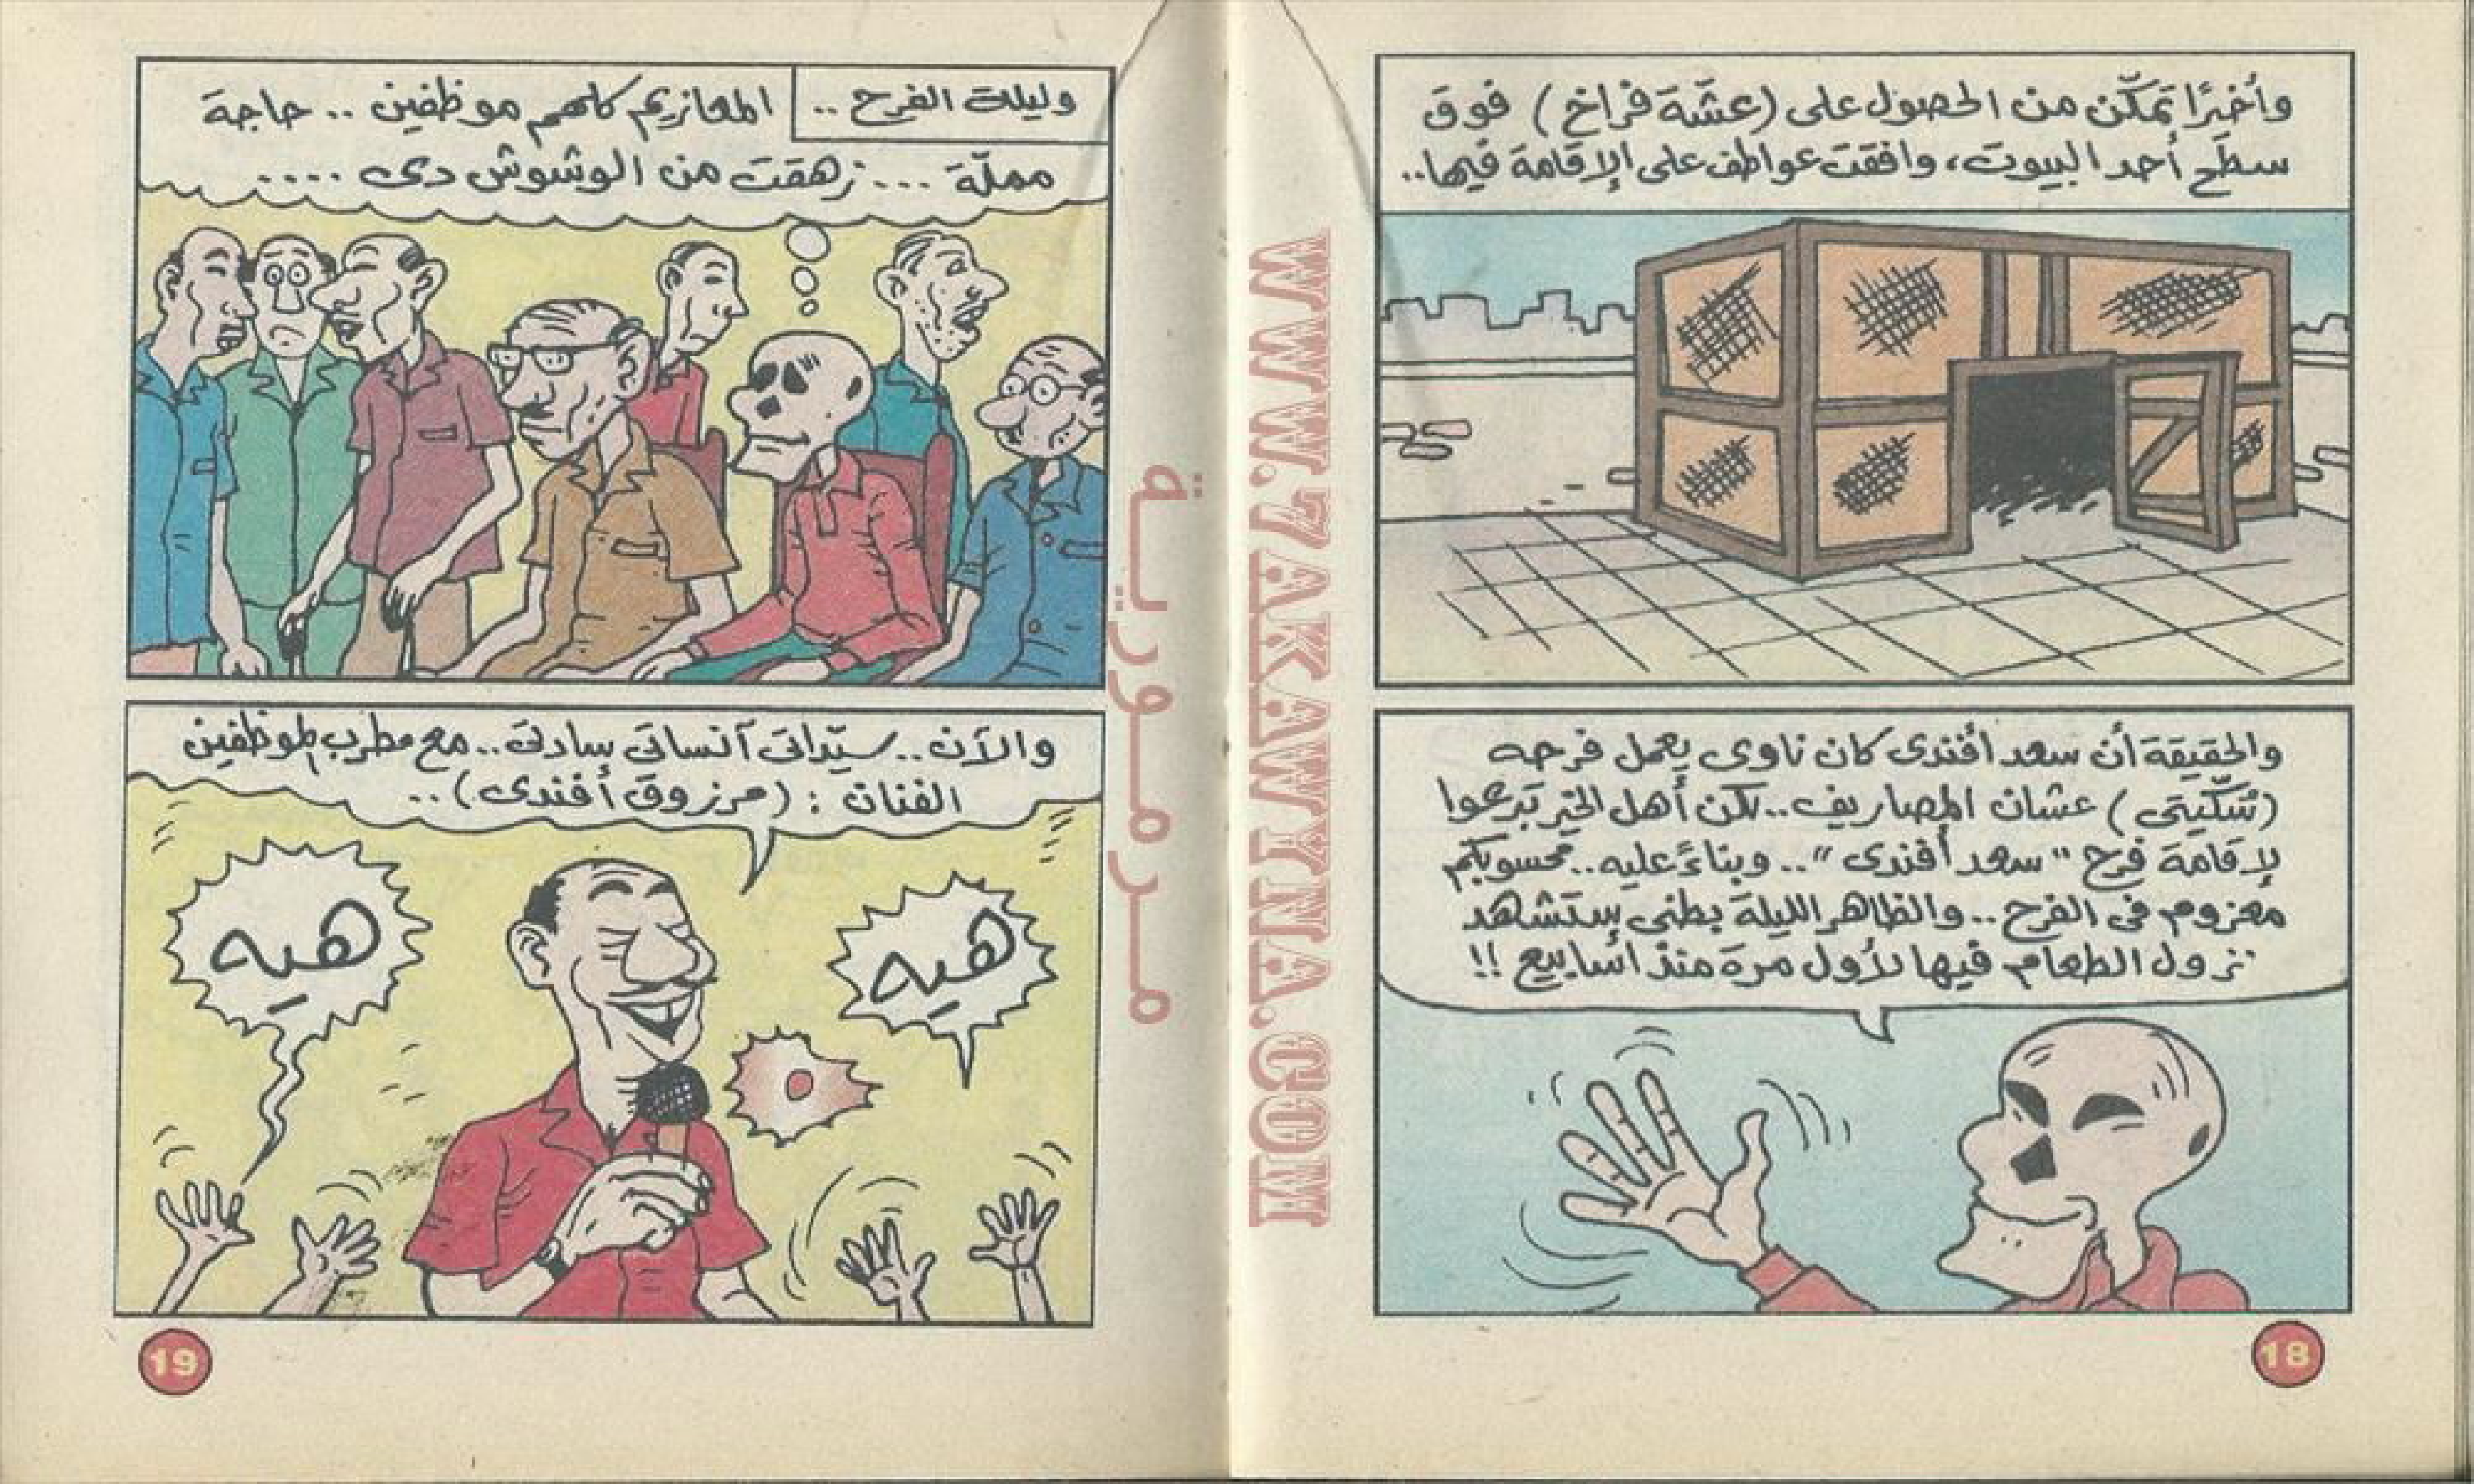 وأخيرًا تمكّن من الحصول على (عشّة فراخ) فوق
سطح أحد البيوت، وافقت عواطف على الإقامة فيها..
والحقيقة أن سعد أفندى كان ناوى يعمل فرحه
(سُكّيتى) عشان المصاريف.. لكن أهل الخير تبرعوا
لإقامة فرح "سعد أفندى".. وبناءً عليه.. محسوبكم
معزوم فى الفرح.. والظاهر الليلة بطنى ستشهد
نزول الطعام فيها لأول مرة منذ أسابيع !!
18
وليلة الفرح ..
المعازيم كلهم موظفين .. حاجة
مملّة ... زهقت من الوشوش دى ....
والآن.. سيّداتى آنساتى سادتى.. مع مطرب الموظفين
الفنان : (مرزوق أفندى)..
هيه
هيه
19
مـرمـوريـة
WWW.ZAKAWYNA.COM